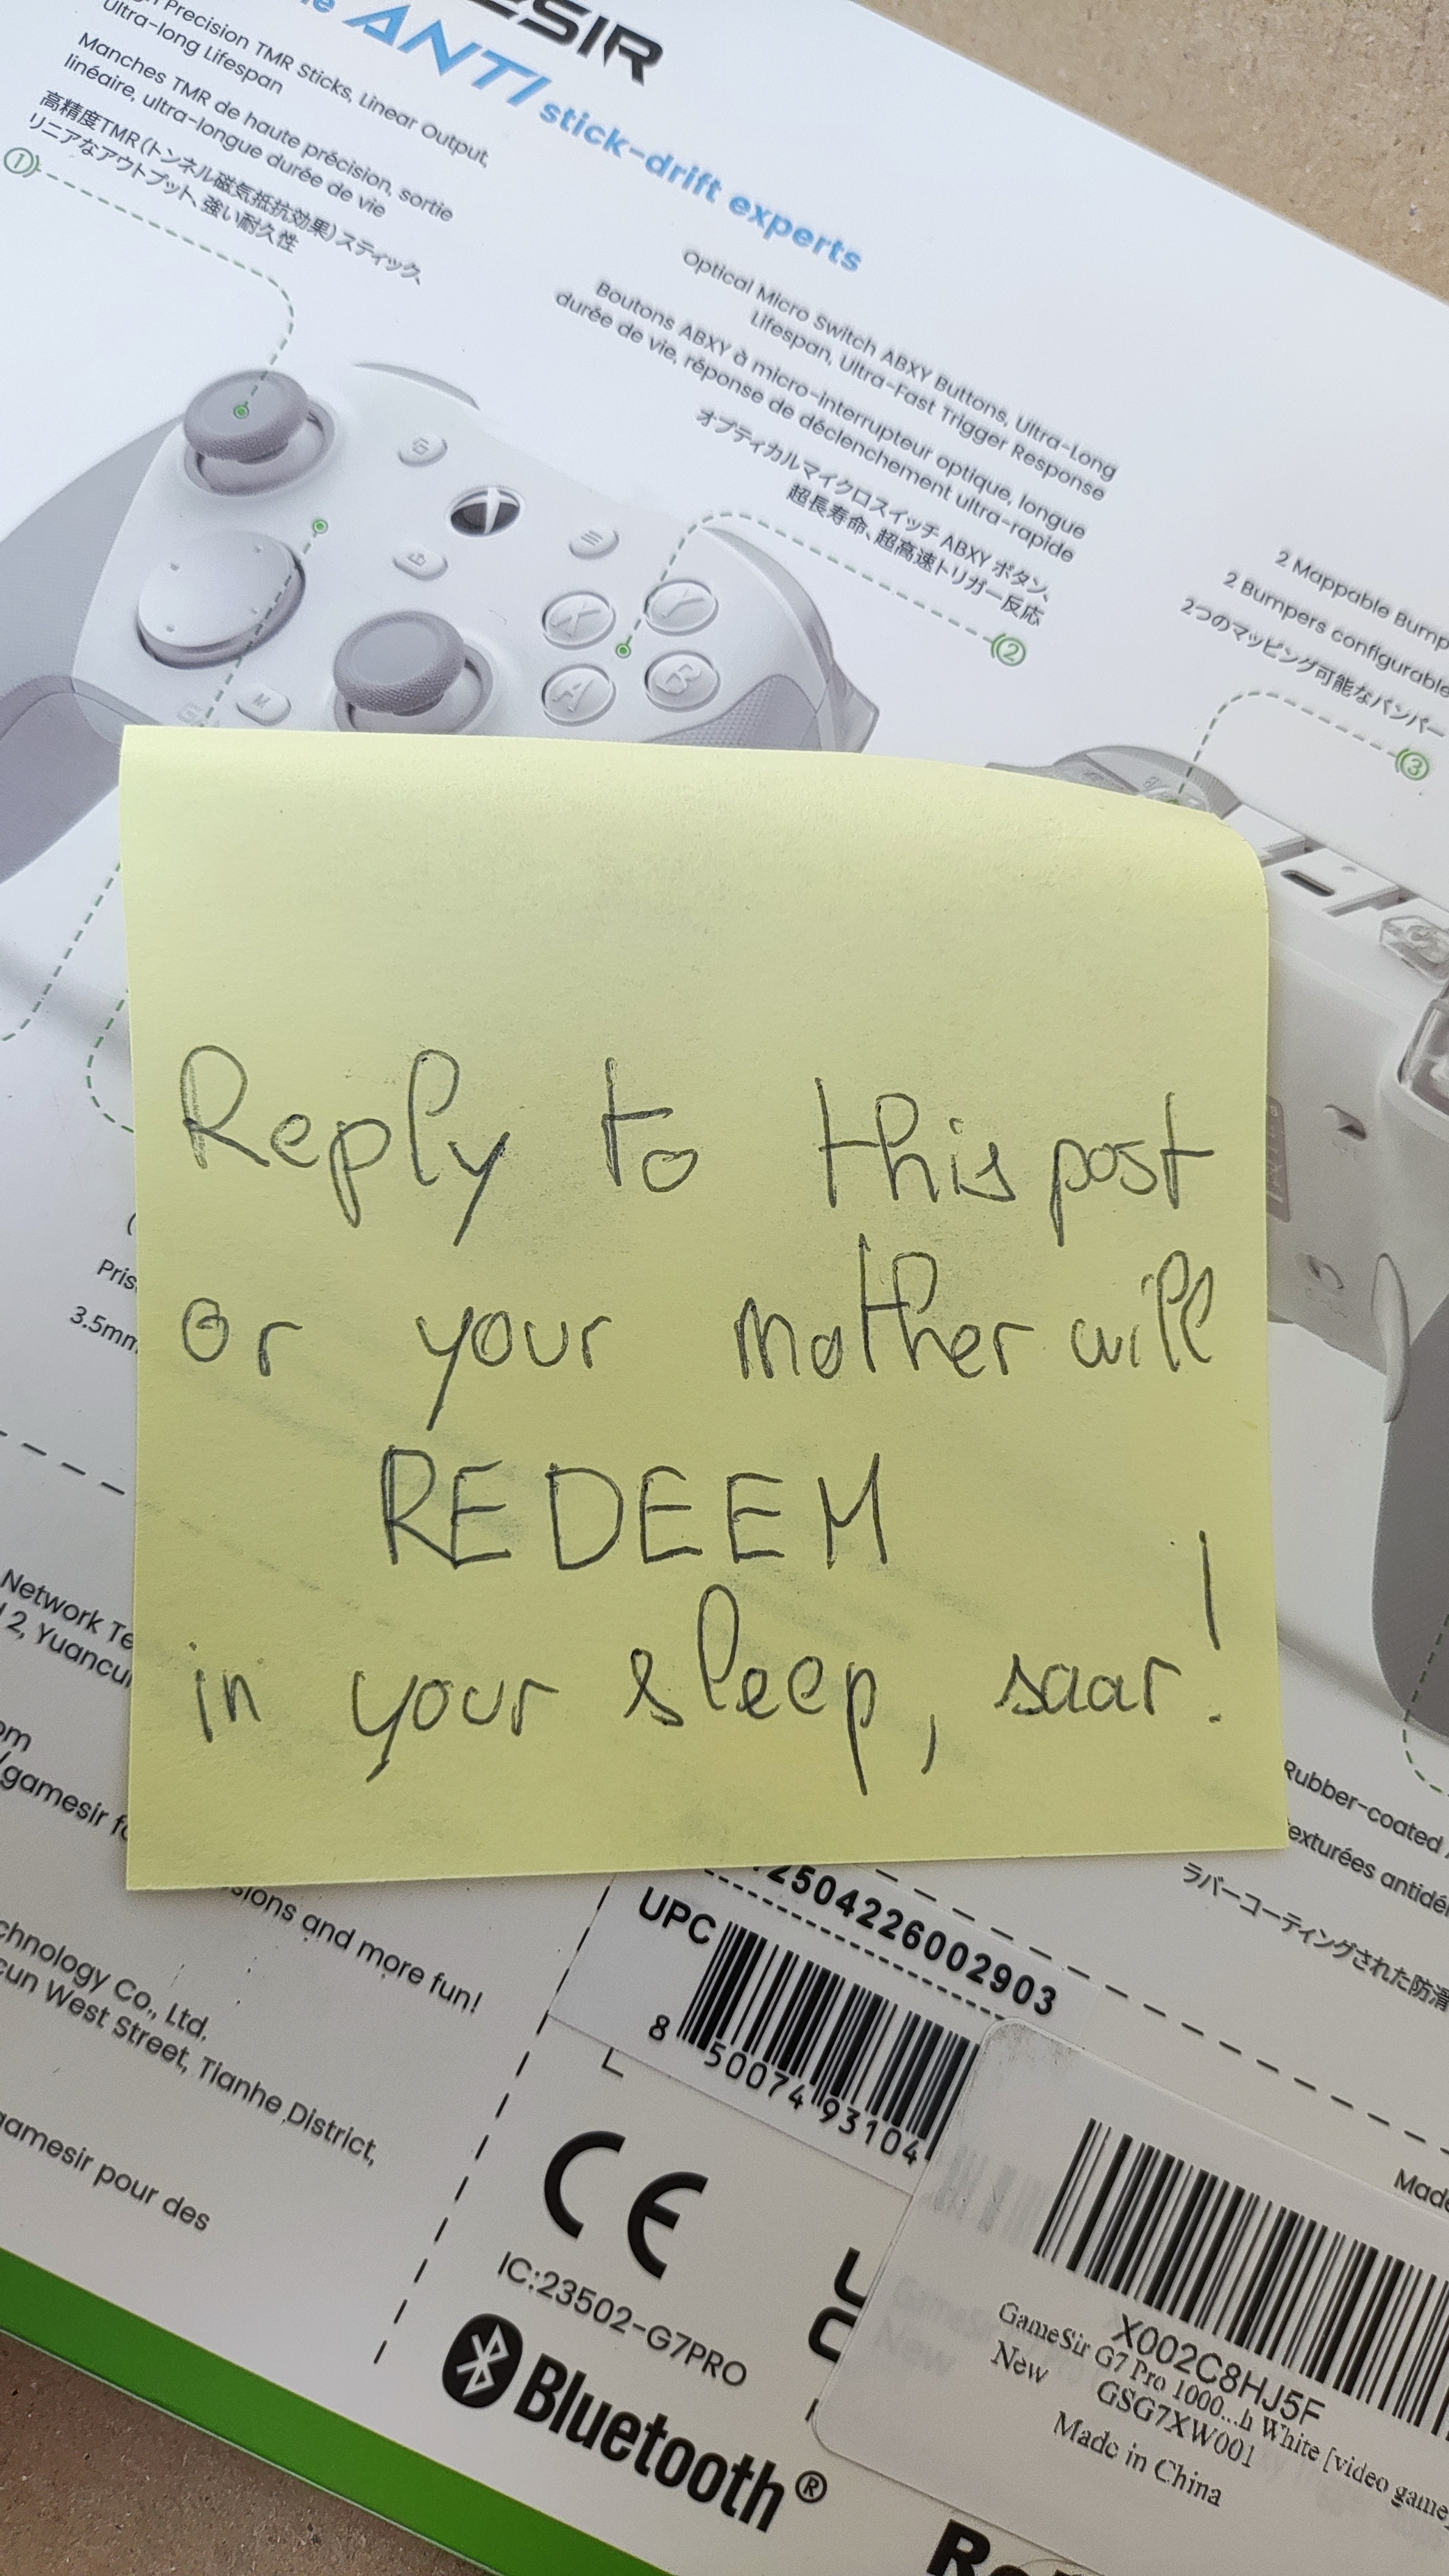 ANTI stick-drift experts
Precision TMR Sticks, Linear Output,
Ultra-long Lifespan
Manches TMR de haute précision, sortie
linéaire, ultra-longue durée de vie
高精度TMR(トンネル磁気抵抗効果)スティック、
リニアなアウトプット、強い耐久性
①
Optical Micro Switch ABXY Buttons, Ultra-Long
Lifespan, Ultra-Fast Trigger Response
Boutons ABXY à micro-interrupteur optique, longue
durée de vie, réponse de déclenchement ultra-rapide
オプティカルマイクロスイッチ ABXY ボタン、
超長寿命、超高速トリガー反応
②
2 Mappable Bump
2 Bumpers configurable
2つのマッピング可能なバンパー
③
X
Y
A
B
M
Reply to this post
or your mother will
REDEEM
in your sleep, saar!
3.5mm
Network Te
2, Yuancu
om
/gamesir fo
sions and more fun!
chnology Co., Ltd,
cun West Street, Tianhe District,
amesir pour des
Rubber-coated
exturées antidé
ラバーコーティングされた防滑
2504226002903
UPC
8 50074 93104
CE
IC:23502-G7PRO
Bluetooth®
Made
X002C8HJ5F
GameSir G7 Pro 1000...h White [video game
New
GSG7XW001
Made in China